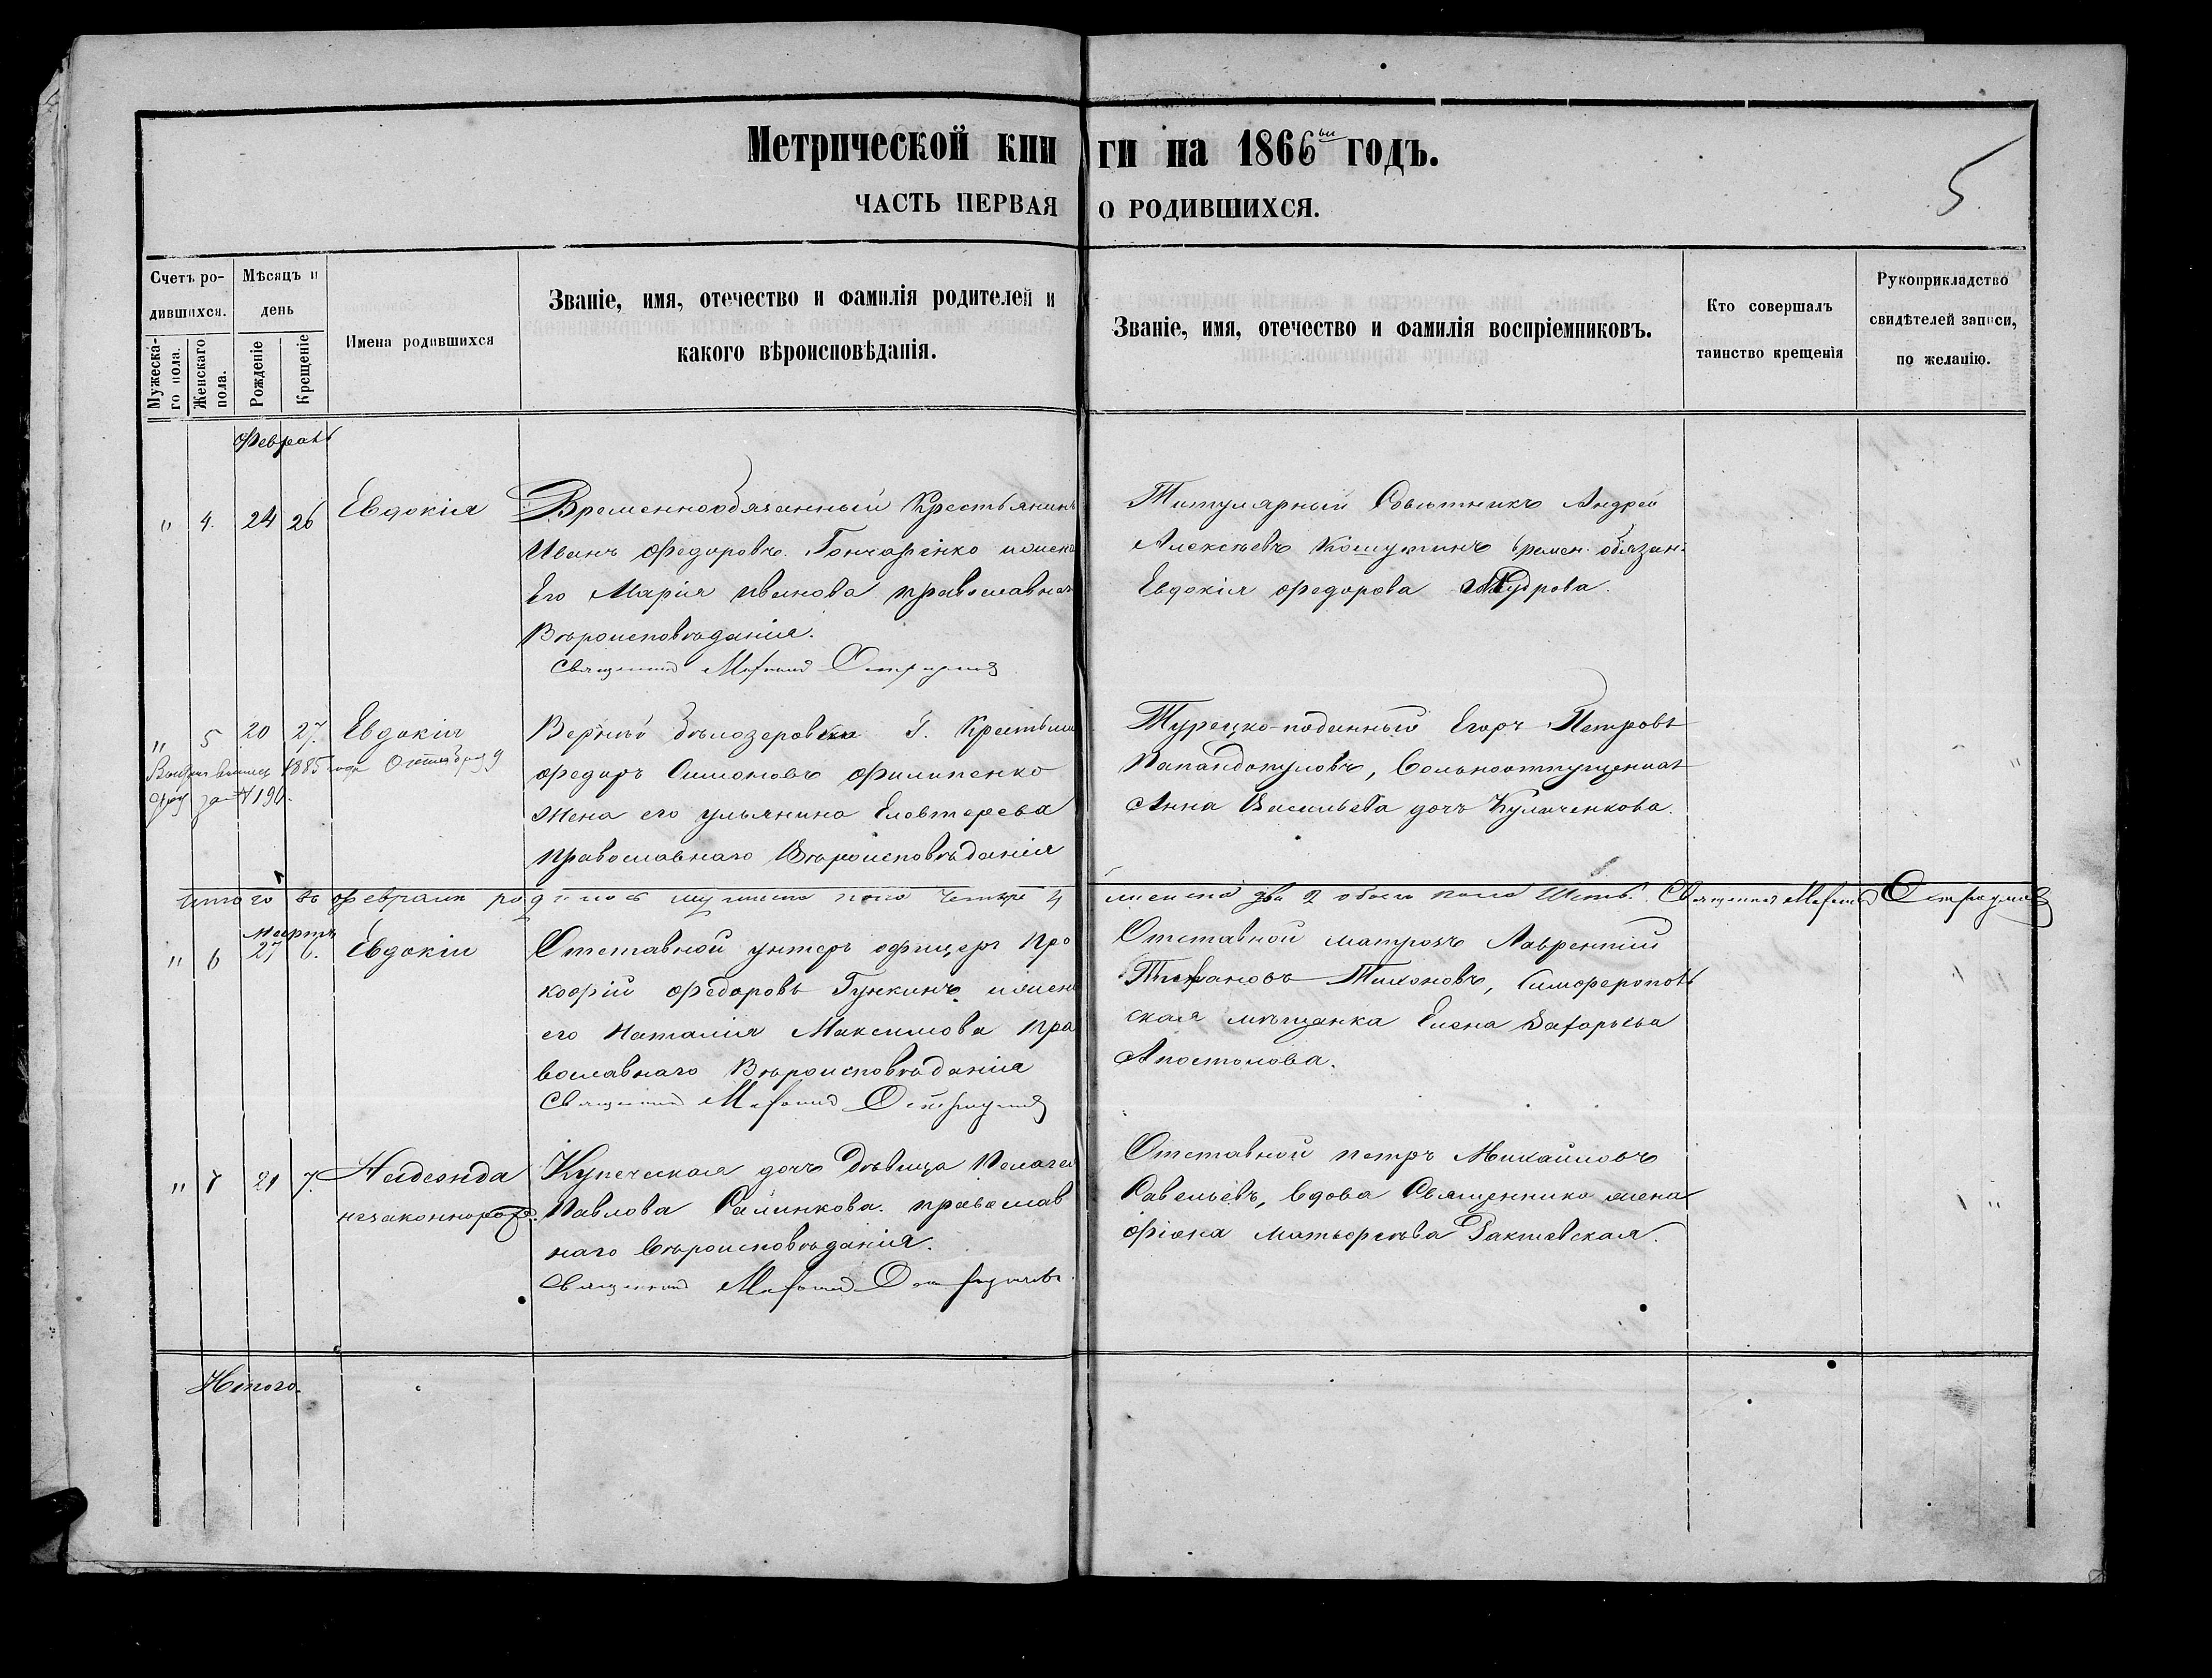 Метрической кни ги на 1866ый годъ.
5
ЧАСТЬ ПЕРВАЯ О РОДИВШИХСЯ.
Счетъ родившихся.
Мужескаго пола.
Женскаго пола.
Мѣсяцъ и день
Рожденіе
Крещеніе
Имена родившихся
Званіе, имя, отечество и фамилія родителей и
какого вѣроисповѣданія.
Званіе, имя, отечество и фамилія воспріемниковъ.
Кто совершалъ
таинство крещенія
Рукоприкладство
свидѣтелей записи,
по желанію.
Февраль
" 4. 24 26 Евдокія
Временнообязанный Крестьянинъ
Иванъ Федоровъ Гончаренко и жена
Его Марія Иванова православнаго
Вѣроисповѣданія.
Священникъ
Титулярный Совѣтникъ Андрей
Алексѣевъ времен. обязан.
Евдокія Федорова Мудрова.
" 5 20 27. Евдокія
1885 года Октября 9
за № 190.
Крестьянинъ
Федоръ Симоновъ Филипенко
Жена его Ульянина Елевтерева
Православнаго Вѣроисповѣданія
Турецко-поданный Егоръ Петровъ
Папандопуловъ, Вольноотпущенная
Анна Васильева дочь Куличенкова.
Итого въ Февралѣ родилось мужеска пола четыре 4
женска два 2 обоего пола Шесть. Священникъ
Мартъ
" 6 27 6. Евдокія
Отставной унтеръ офицеръ Про
кофій Федоровъ Гункинъ и жена
его Наталія Максимова Пра
вославнаго Вѣроисповѣданія
Священникъ
Отставной матрозъ Лаврентій
Тихоновъ, Симферополь
ская мѣщанка Елена Захарьева
Апостолова.
" 7 21 7. Надежда
незаконнорож.
Купеческая дочь Дѣвица Пелагея
Павлова Салинкова. православ
наго вѣроисповѣданія.
Священникъ
Отставной Петръ Михайловъ
Савельевъ, вдова Священника жена
Матьфеева
Итого.